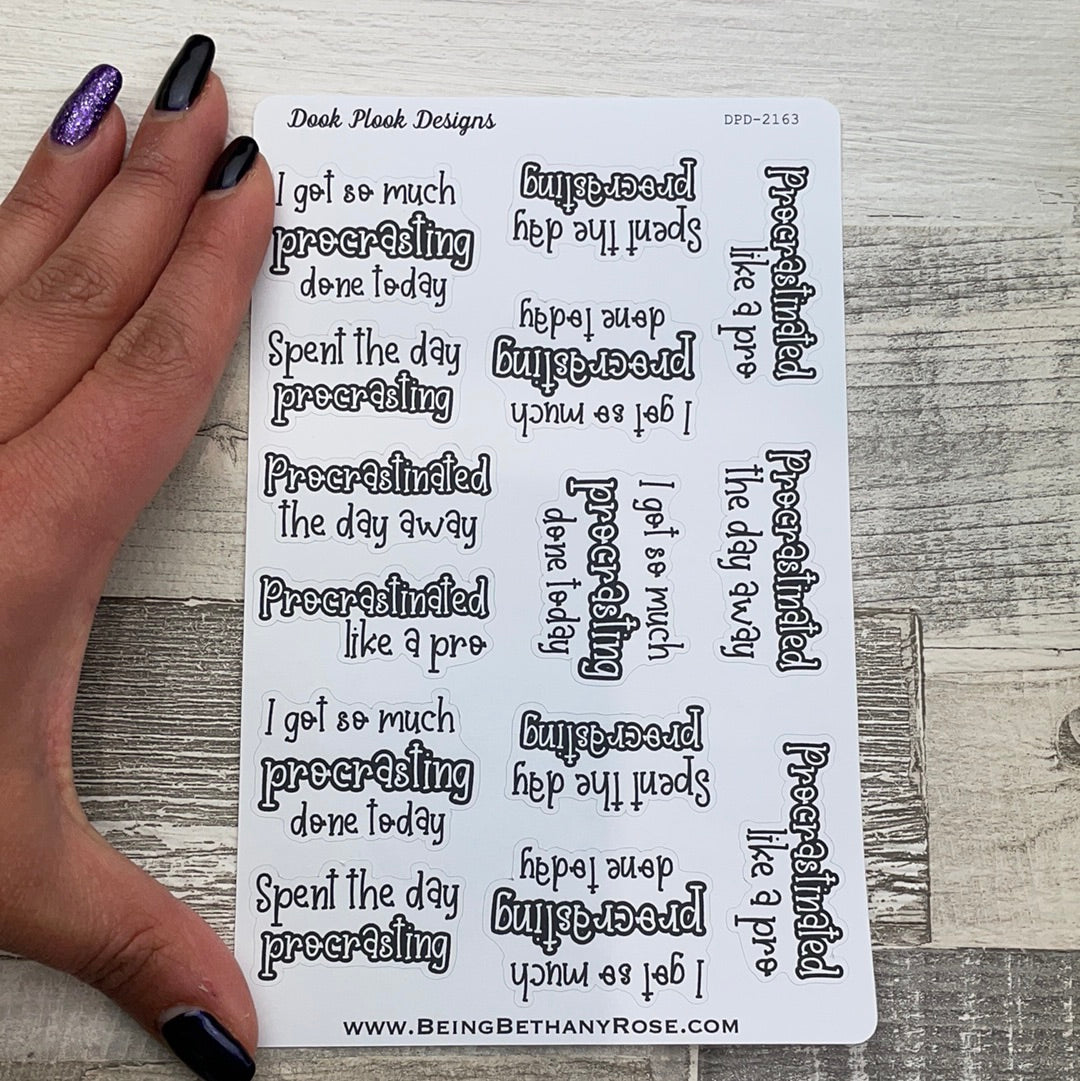 Dook Plook Designs
DPD-2163
I got so much
procrasting
done today
Spent the day
procrasting
Procrastinated
the day away
Procrastinated
like a pro
I got so much
procrasting
done today
Spent the day
procrasting
Spent the day
procrasting
I got so much
procrasting
done today
I got so much
procrasting
done today
Spent the day
procrasting
I got so much
procrasting
done today
Procrastinated
like a pro
Procrastinated
the day away
Procrastinated
like a pro
www.BeingBethanyRose.com